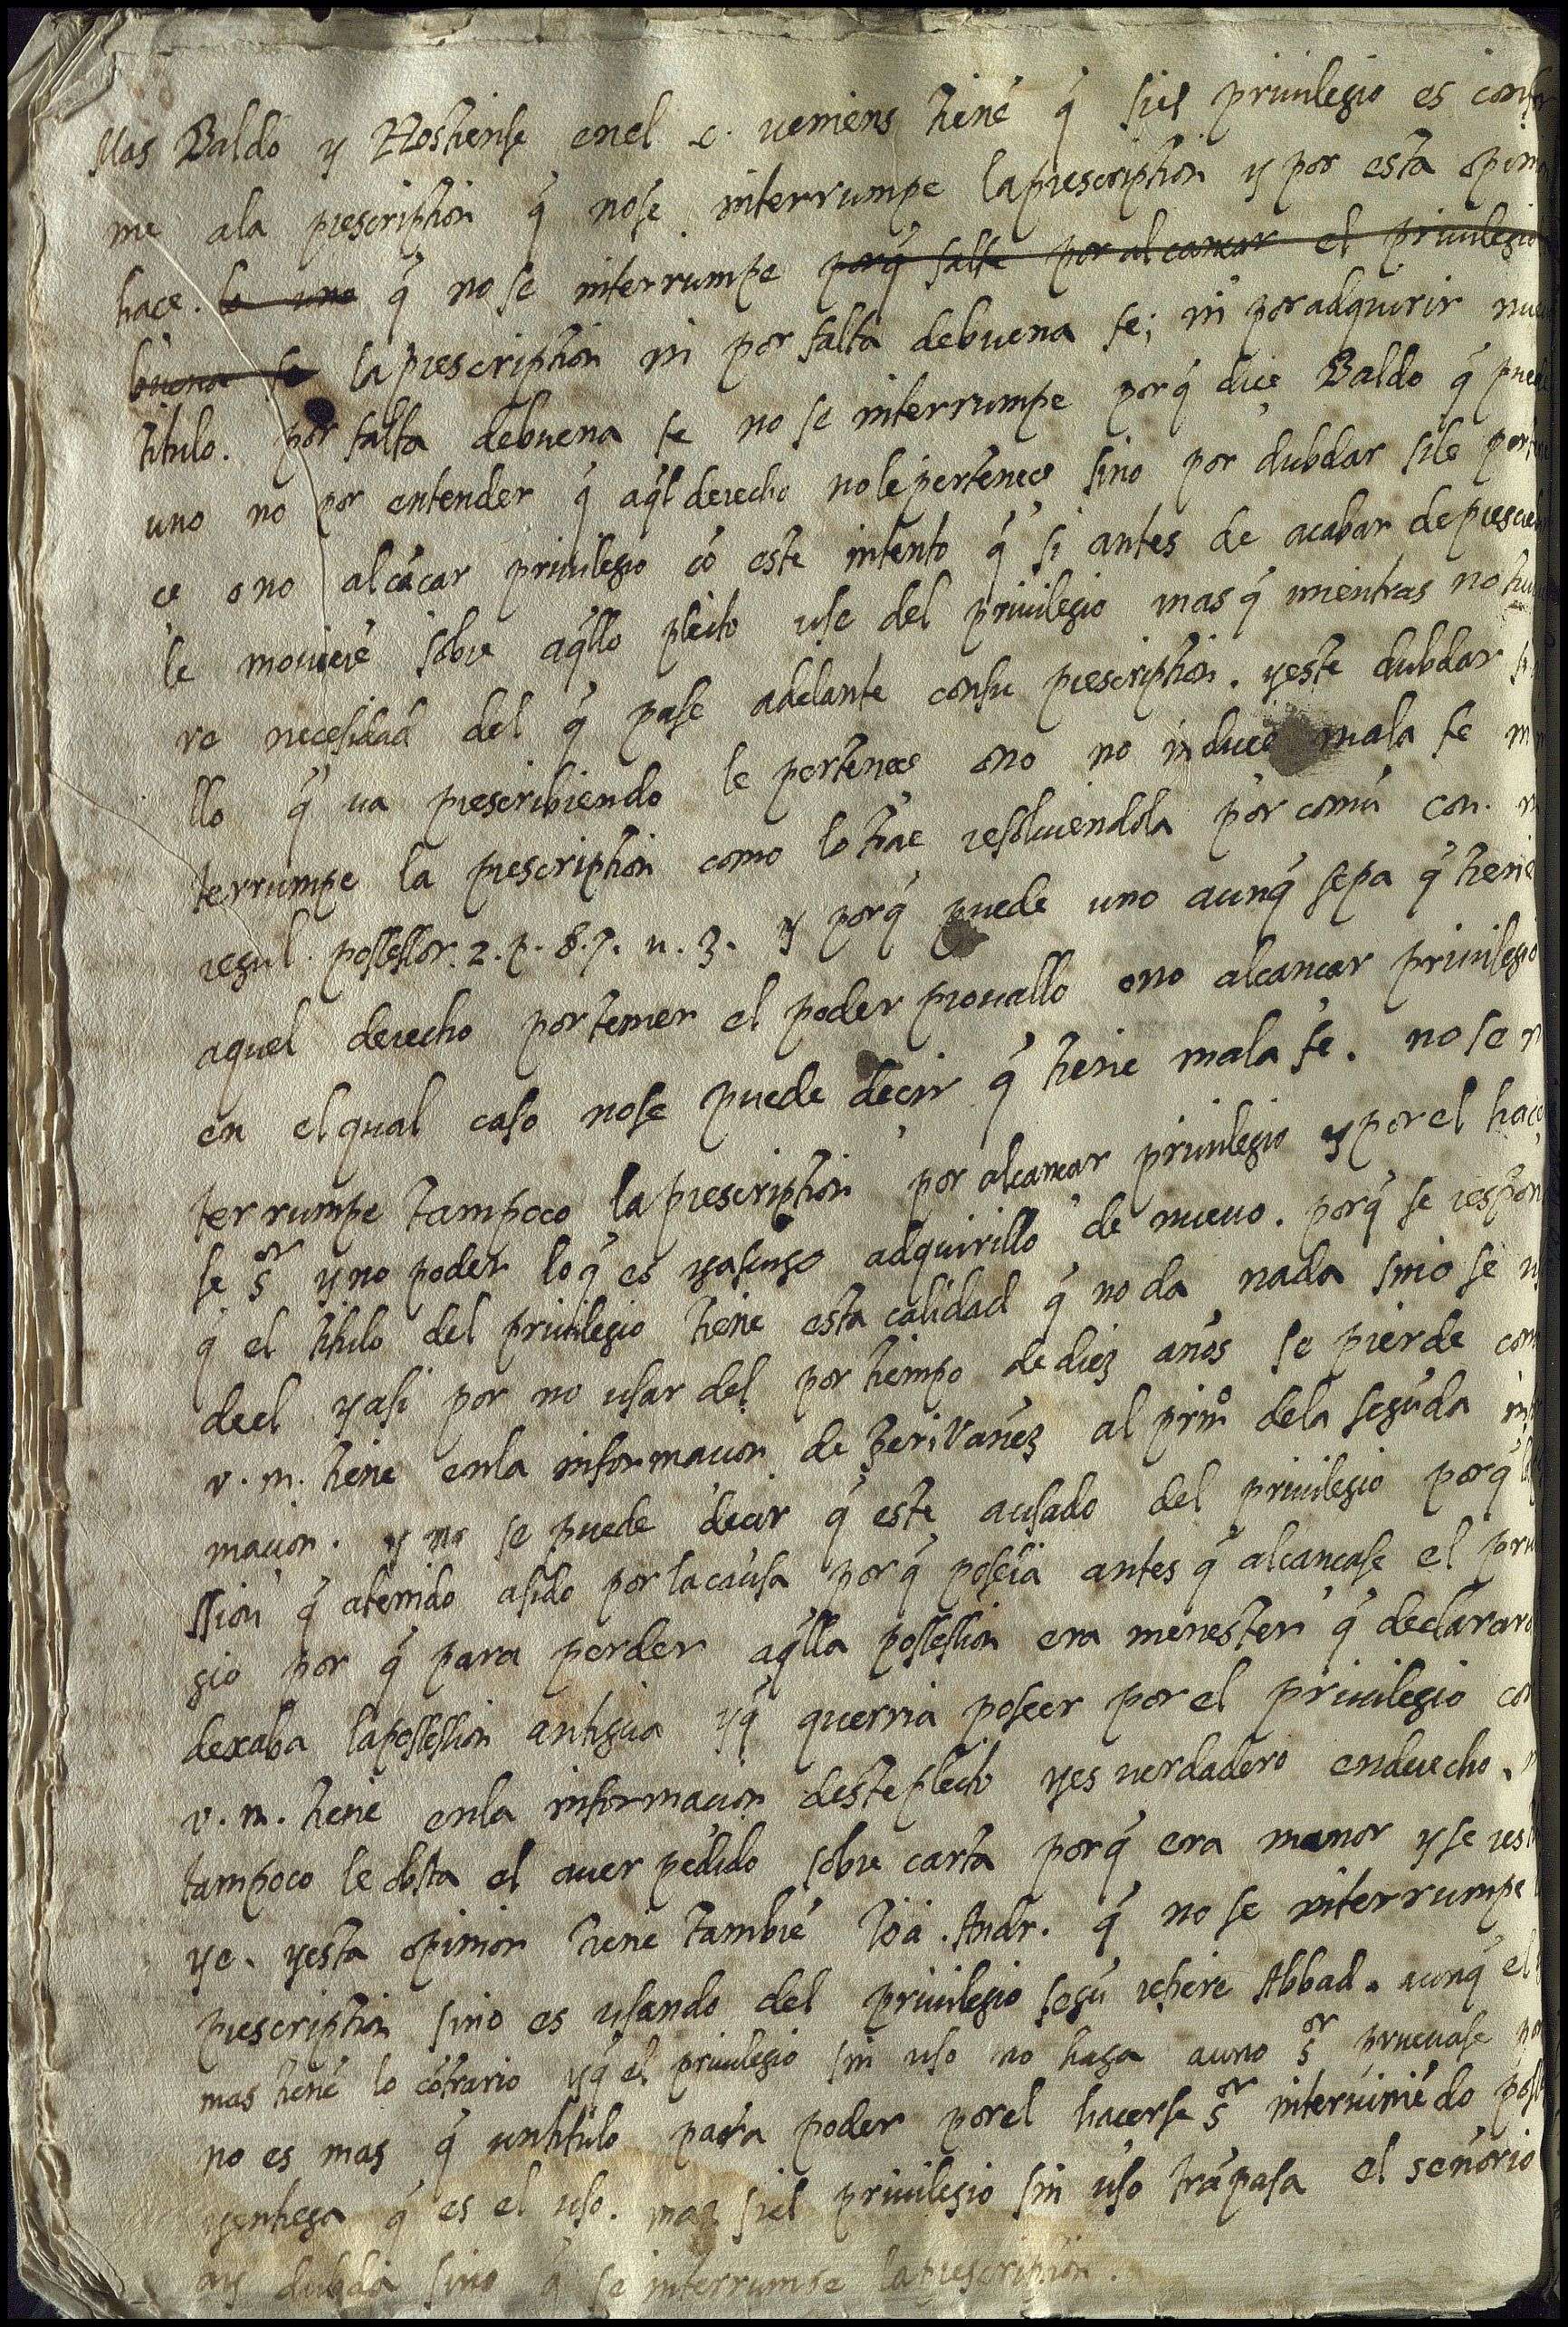 Mas Baldo y Hostiense en el c. veniens tiene q̃ si el privilegio es confor
me a la prescription q̃ no se interrumpe la prescription y por esta opini
hace. lo uno q̃ no se interrumpe porq̃ falte por alcancar el privilegio
buena fe la prescription ni por falta de buena fe; ni por adquirir nue
titulo. por falta de buena fe no se interrumpe porq̃ dice Baldo q̃ puede
uno no por entender q̃ aq̃l derecho no le pertenece sino por dubdar si le perte
ce o no alcãcar privilegio cõ este intento q̃ si antes de acabar de prescreb
le moviere sobre aq̃llo pleito use del privilegio mas q̃ mientras no tuv
re necesidad del q̃ pase adelante con su prescription. y este dubdar si
llo q̃ va prescribiendo le pertenece o no no induce mala fe ni
terrumpe la prescription como lo trae resolviendola por comũ Cou. in
regul. possessor. 2. p. §. 7. n. 3. y porq̃ puede uno aunq̃ sepa q̃ tiene
aquel derecho por temer el poder provallo o no alcancar privilegio
en el qual caso no se puede decir q̃ tiene mala fe. no se in
terrumpe tampoco la prescription por alcancar privilegio y por el hacer
se sor y no poder lo q̃ es ya suyo adquirillo de nuevo. porq̃ se respon
q̃ el titulo del privilegio tiene esta calidad q̃ no da nada sino se us
de el y asi por no usar del por tiempo de diez años se pierde com
v. m. tiene en la informacion de Perivañez al prinº de la segũda infor
macion. y no se puede decir q̃ este a usado del privilegio porq̃ la
ssion q̃ a tenido a sido por la causa porq̃ poseia antes q̃ alcancase el priv
gio por q̃ para perder aq̃lla possession era menester q̃ declarara
dexaba la possession antigua y q̃ querria poseer por el privilegio com
v. m. tiene en la informacion deste pleito y es verdadero en derecho. ni
tampoco le obsta el aver pedido sobre carta porq̃ era menor y se rest
ye. y esta opinion tiene tambiẽ Ioã. Andr. q̃ no se interrumpe
prescription sino es usando del privilegio segũ refiere Abbad. aunq̃ el
mas tiene lo cõtrario y q̃ el privilegio sin uso no haga a uno sor pruevase por
no es mas q̃ un titulo para poder por el hacerse sor interviniẽdo pose
y entrega q̃ es el uso. mas si el privilegio sin uso trãpasa el señorio
ay dubda sino q̃ se interrumpe la prescription.